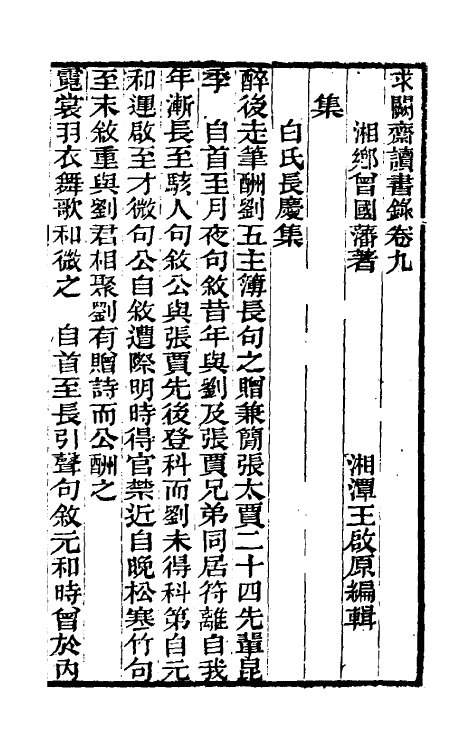 求闕齋讀書錄卷九
湘鄉曾國藩著 湘潭王啟原編輯
集
白氏長慶集
醉後走筆酬劉五主簿長句之贈兼簡張太賈二十四先輩昆
季 自首至月夜句敘昔年與劉及張賈兄弟同居符離自我
年漸長至駭人句敘公與張賈先後登科而劉未得科第自元
和運啟至才微句公自敘遭際明時得官禁近自晚松寒竹句
至末敘重與劉君相聚劉有贈詩而公酬之
霓裳羽衣舞歌和微之 自首至長引聲句敘元和時曾於內